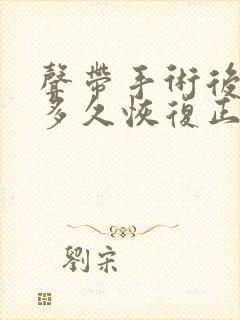 聲帶手術後
多久恢復正
劉宋